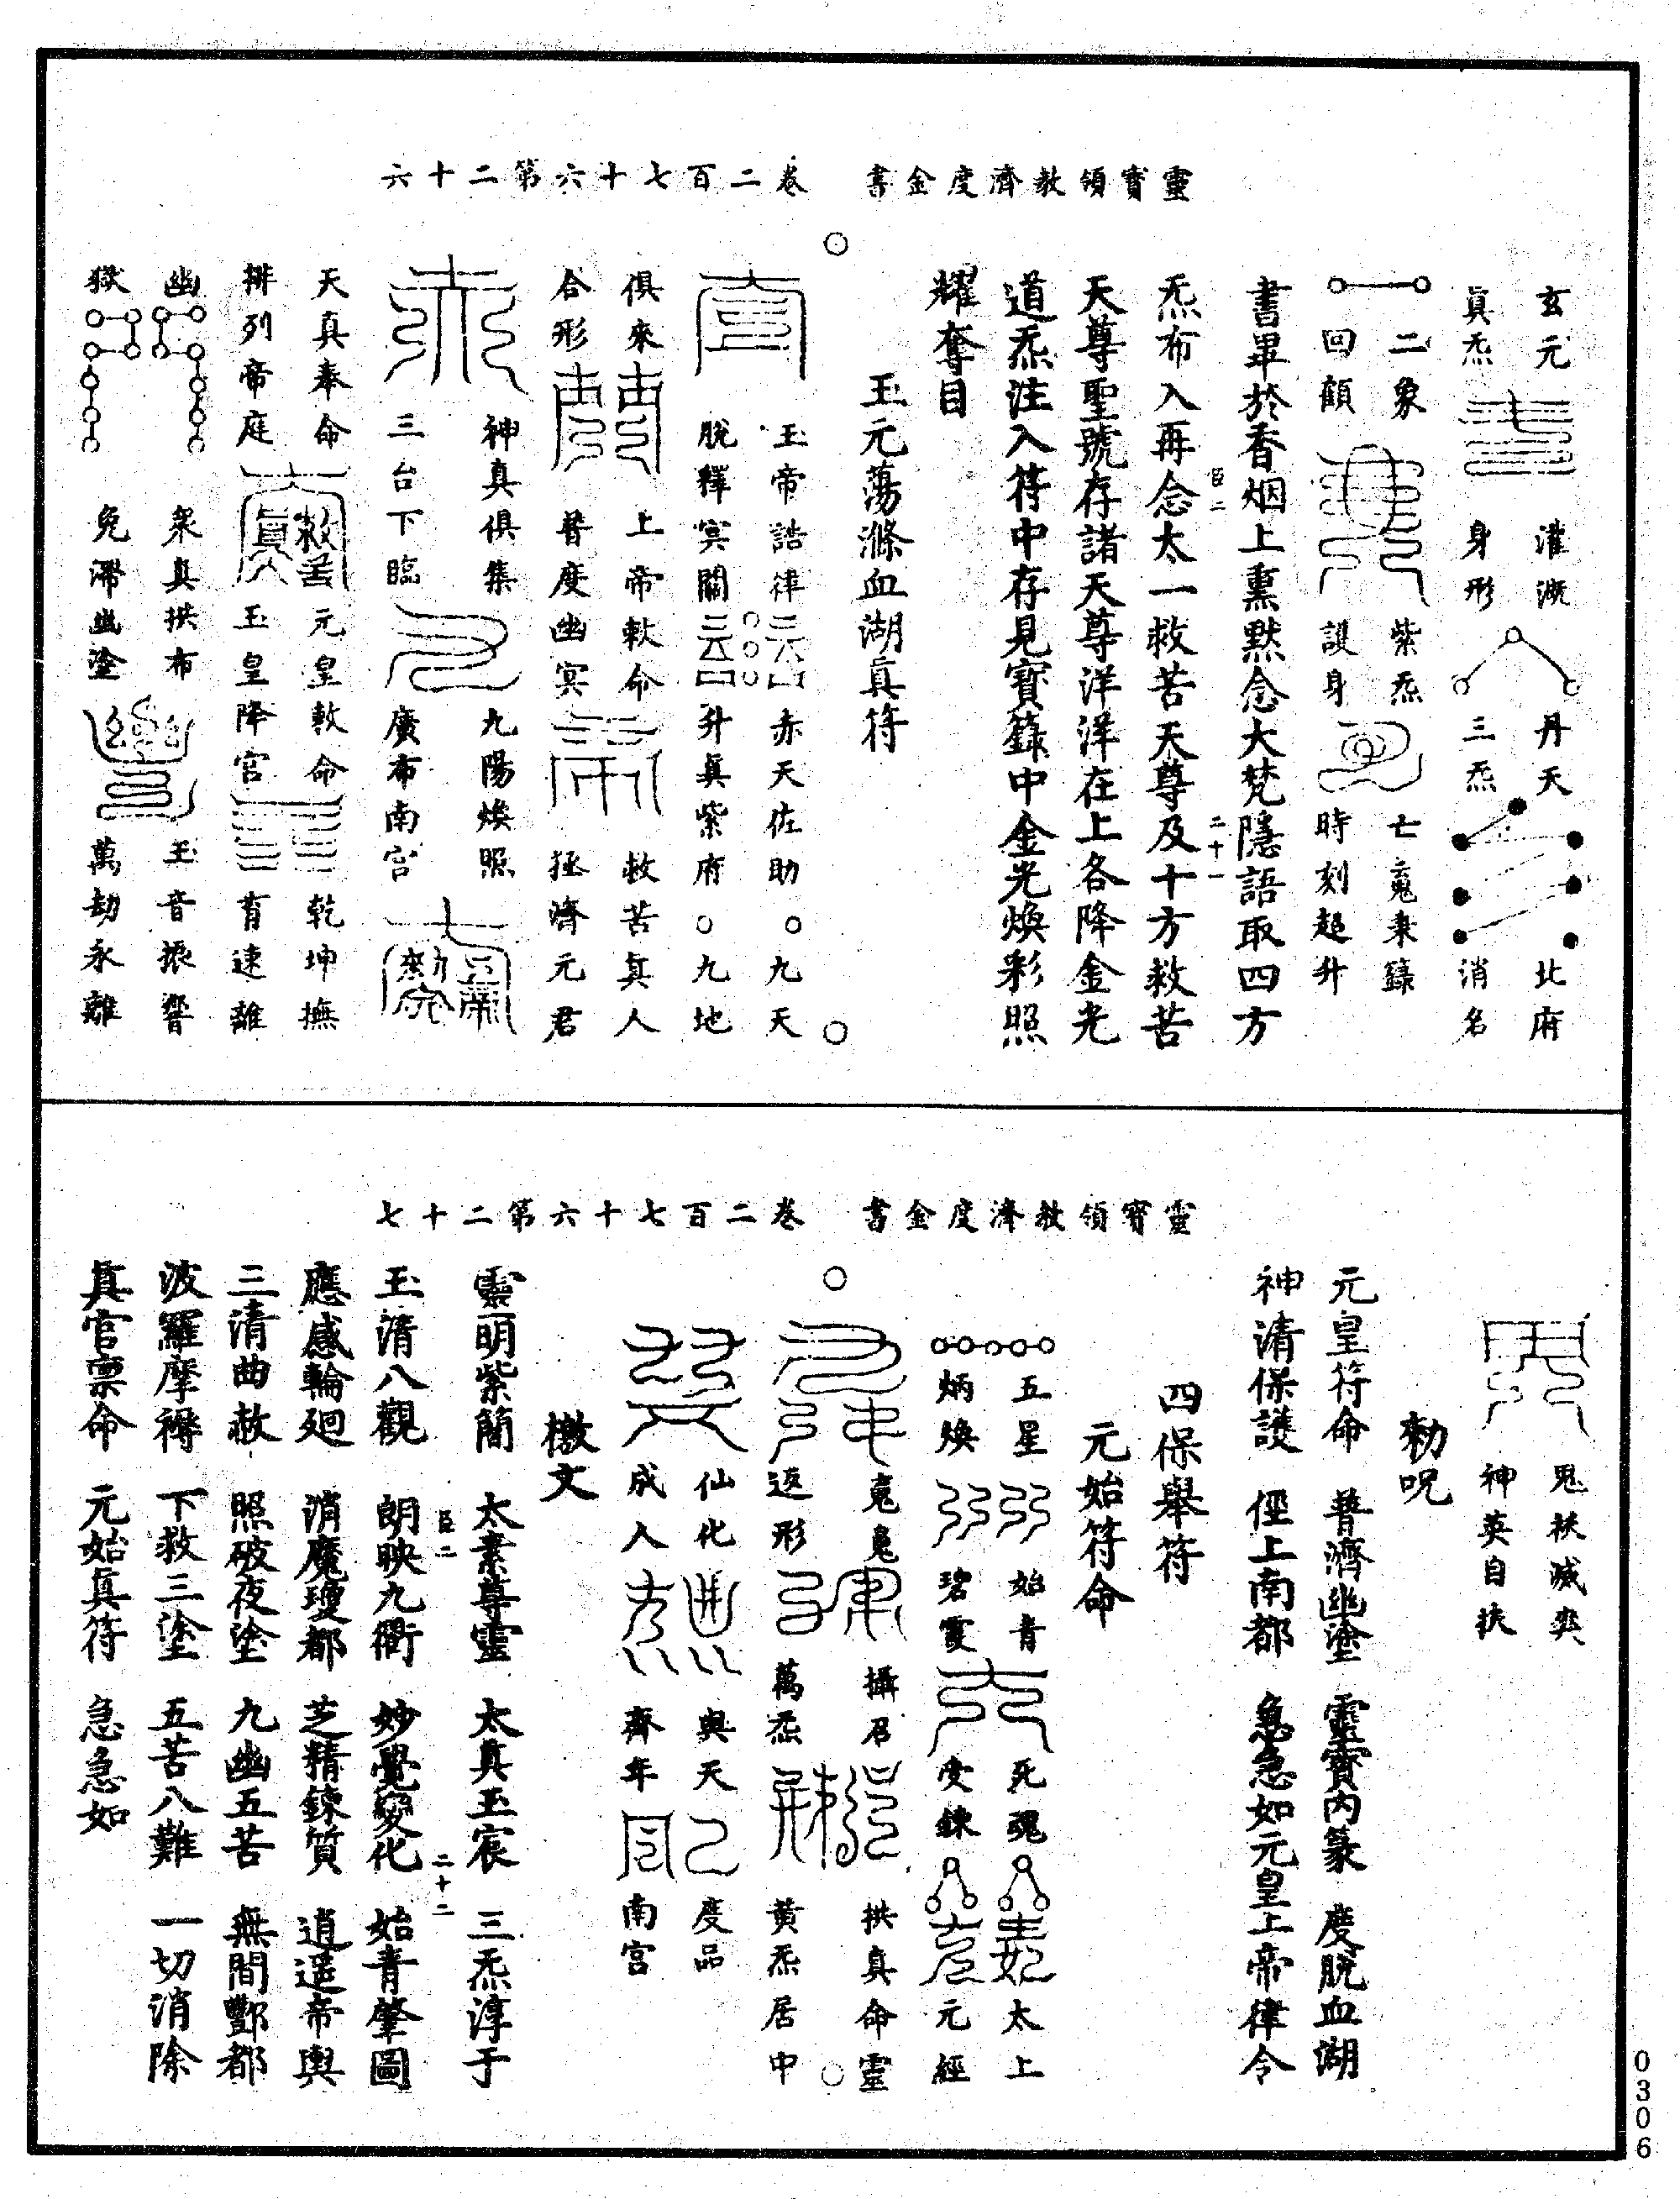 靈寶領教濟度金書　卷二百七十六第二十六
玄元　灌溉　丹天　北府
眞炁　身形　三炁　消名
二象　紫炁　七䰢束籙
回顧　護身　時刻超升
書畢於香烟上熏默念大梵隱語取四方
炁布入再念太一救苦天尊及十方救苦
天尊聖號存諸天尊洋洋在上各降金光
道炁注入符中存見寳籙中金光煥彩照
耀奪目
玉元蕩滌血湖眞符
玉帝誥律　赤天佐助○九天
脫釋㝠關　升眞紫府○九地
俱來　上帝敕命　救苦眞人
合形　普度幽㝠　拯濟元君
神真俱集　九陽煥照
三台下臨　廣布南宮
天真奉命　元皇敕命　乾坤撫
排列帝庭　玉皇降官　育速離
幽　衆真拱布　玉音振響
獄　免滯幽塗　萬劫永離
靈寳領教濟度金書　卷二百七十六第二十七
鬼袄滅爽
神英自扶
勑呪
元皇符命　普濟幽塗　靈寳內篆　度脫血湖
神清保護　徑上南都　急急如元皇上帝律令
四保舉符
元始符命
五星　始青　死魂　太上
炳煥　碧霞　受鍊　元經
䰢䰢　攝召　拱真命靈
返形　萬炁　黃炁居中
仙化　與天　度品
成人　齊年　南宮
檄文
靈明紫簡　太素尊靈　太真玉宸　三炁淳于
玉清八觀　朗映九衢　妙覺變化　始青肇圖
應感輪廻　消魔瓊都　芝精鍊質　逍遥帝輿
三清曲赦　照破夜塗　九幽五苦　無間酆都
波羅摩褥　下救三塗　五苦八難　一切消除
眞官稟命　元始眞符　急急如
0306